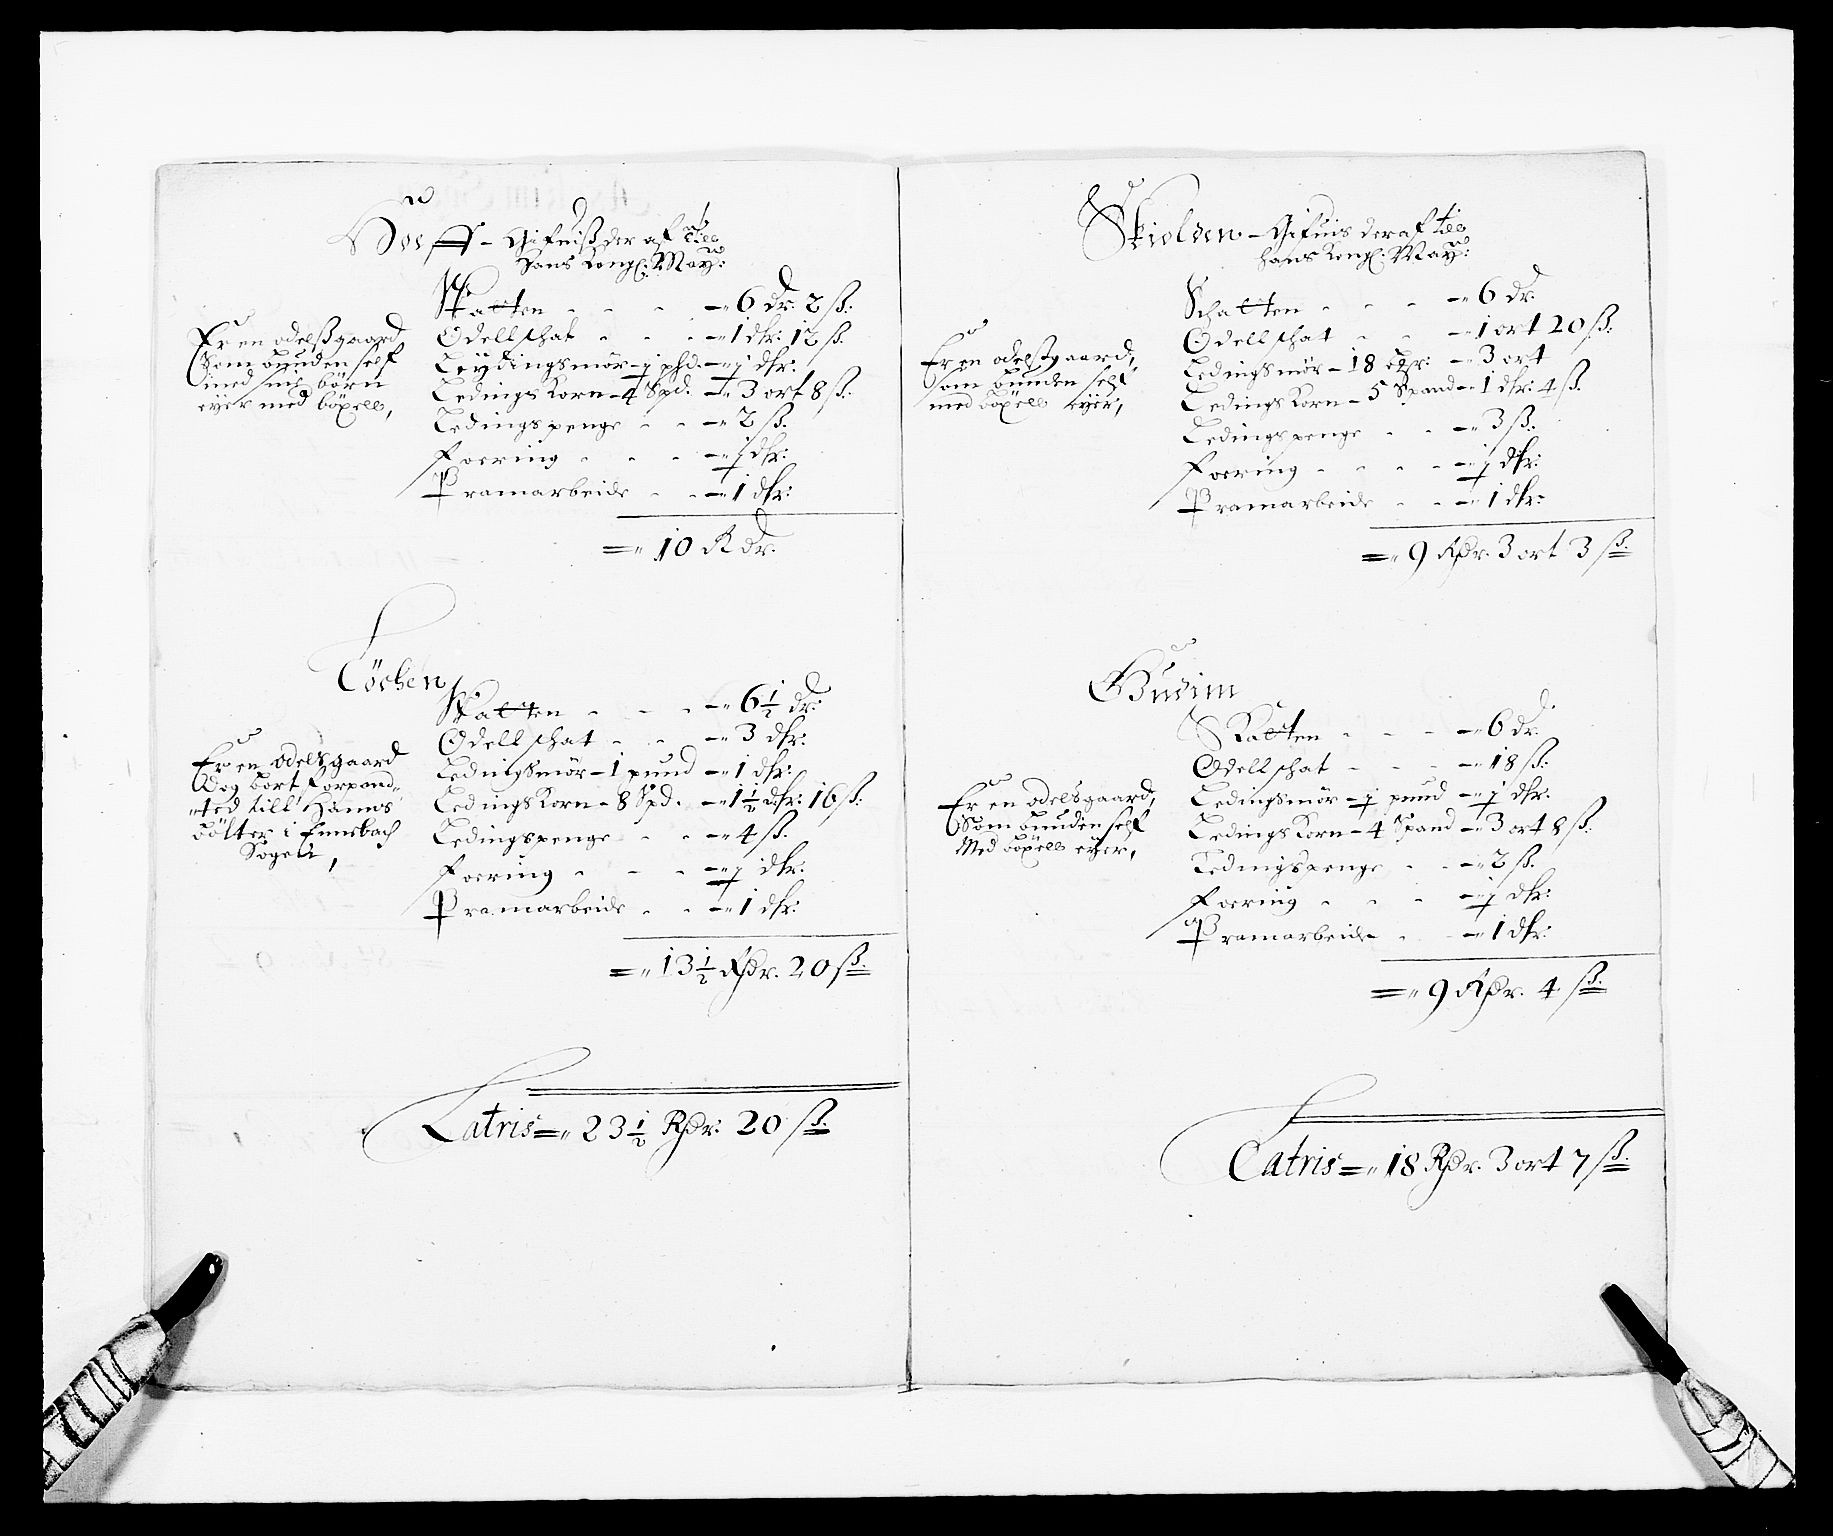 Hoff - Gifuis der af till
hans Kongl: May:
Er en odelsgaard
Som bunden self
med sine börn
eyer med böxell,
Skatten - - - 6 dr. 2 ß:
Odell schat - - - 1 dlr: 12 ß.
Leydingsmör - ½ phd. - ½ dlr:
Ledings Korn - 4 Spd. - 3 ort 8 ß:
Ledingspenge - - 2 ß.
Foering - - - ½ dlr:
Pramarbeide - - 1 dlr:
10 R dr.
Löchen
Er en odelsgaard
Dog bort forpand-
ted till Hanns
Bölter i Ennebach
Sogen,
Skatten - - - 6½ dr:
Odell schat - - 3 dlr:
Ledingsmör - 1 pund - 1 dlr:
Ledings Korn - 8 Spd. - 1½ dlr: 16 ß:
Ledingspenge - - 4 ß.
Foering - - - ½ dlr:
Pramarbeide - - 1 dlr:
13½ Rdr. 20 ß.
Latris 23½ Rdr: 20 ß.
Skiolden - Gifuis der af till
hans Kongl: May:
Er en odelsgaard,
Som bunden self
med böxell eyer,
Schatten - - - 6 dr.
Odell schat - - 1 ort 20 ß:
Ledingsmör - 18 - 3 ort
Ledings Korn - 5 Spand - 1 dlr: 4 ß.
Ledingspenge - - 3 ß:
Foering - - - ½ dlr:
Pramarbeide - - 1 dlr:
9 Rdr. 3 ort 3 ß.
Gudim
Er en odelsgaard,
Som bunden self
Med böxell eyer,
Skatten - - - 6 dr.
Odell schat - - - 18 ß.
Ledingsmör - ½ pund - ½ dlr:
Ledings Korn - 4 Spand - 3 ort 8 ß:
Ledingspenge - - 2 ß.
Foering - - - ½ dlr:
Pramarbeide - - 1 dlr:
9 Rdr. 4 ß.
Latris 18 Rdr. 3 ort 7 ß.